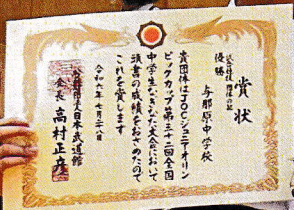 賞状
団体競技 団体の部
優勝
与那原中学校
貴団体はJOCジュニアオリン
ピックカップ第三十二回全国
中学生なぎなた大会において
頭書の成績をおさめたので
これを賞します
令和六年七月二八日
公益財団法人日本武道館
会長 高村正彦